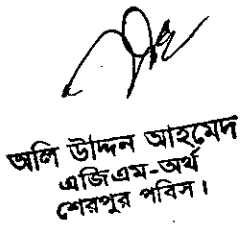 অলি উদ্দিন আহমেদ
এজিএম-অর্থ
শেরপুর পবিস।